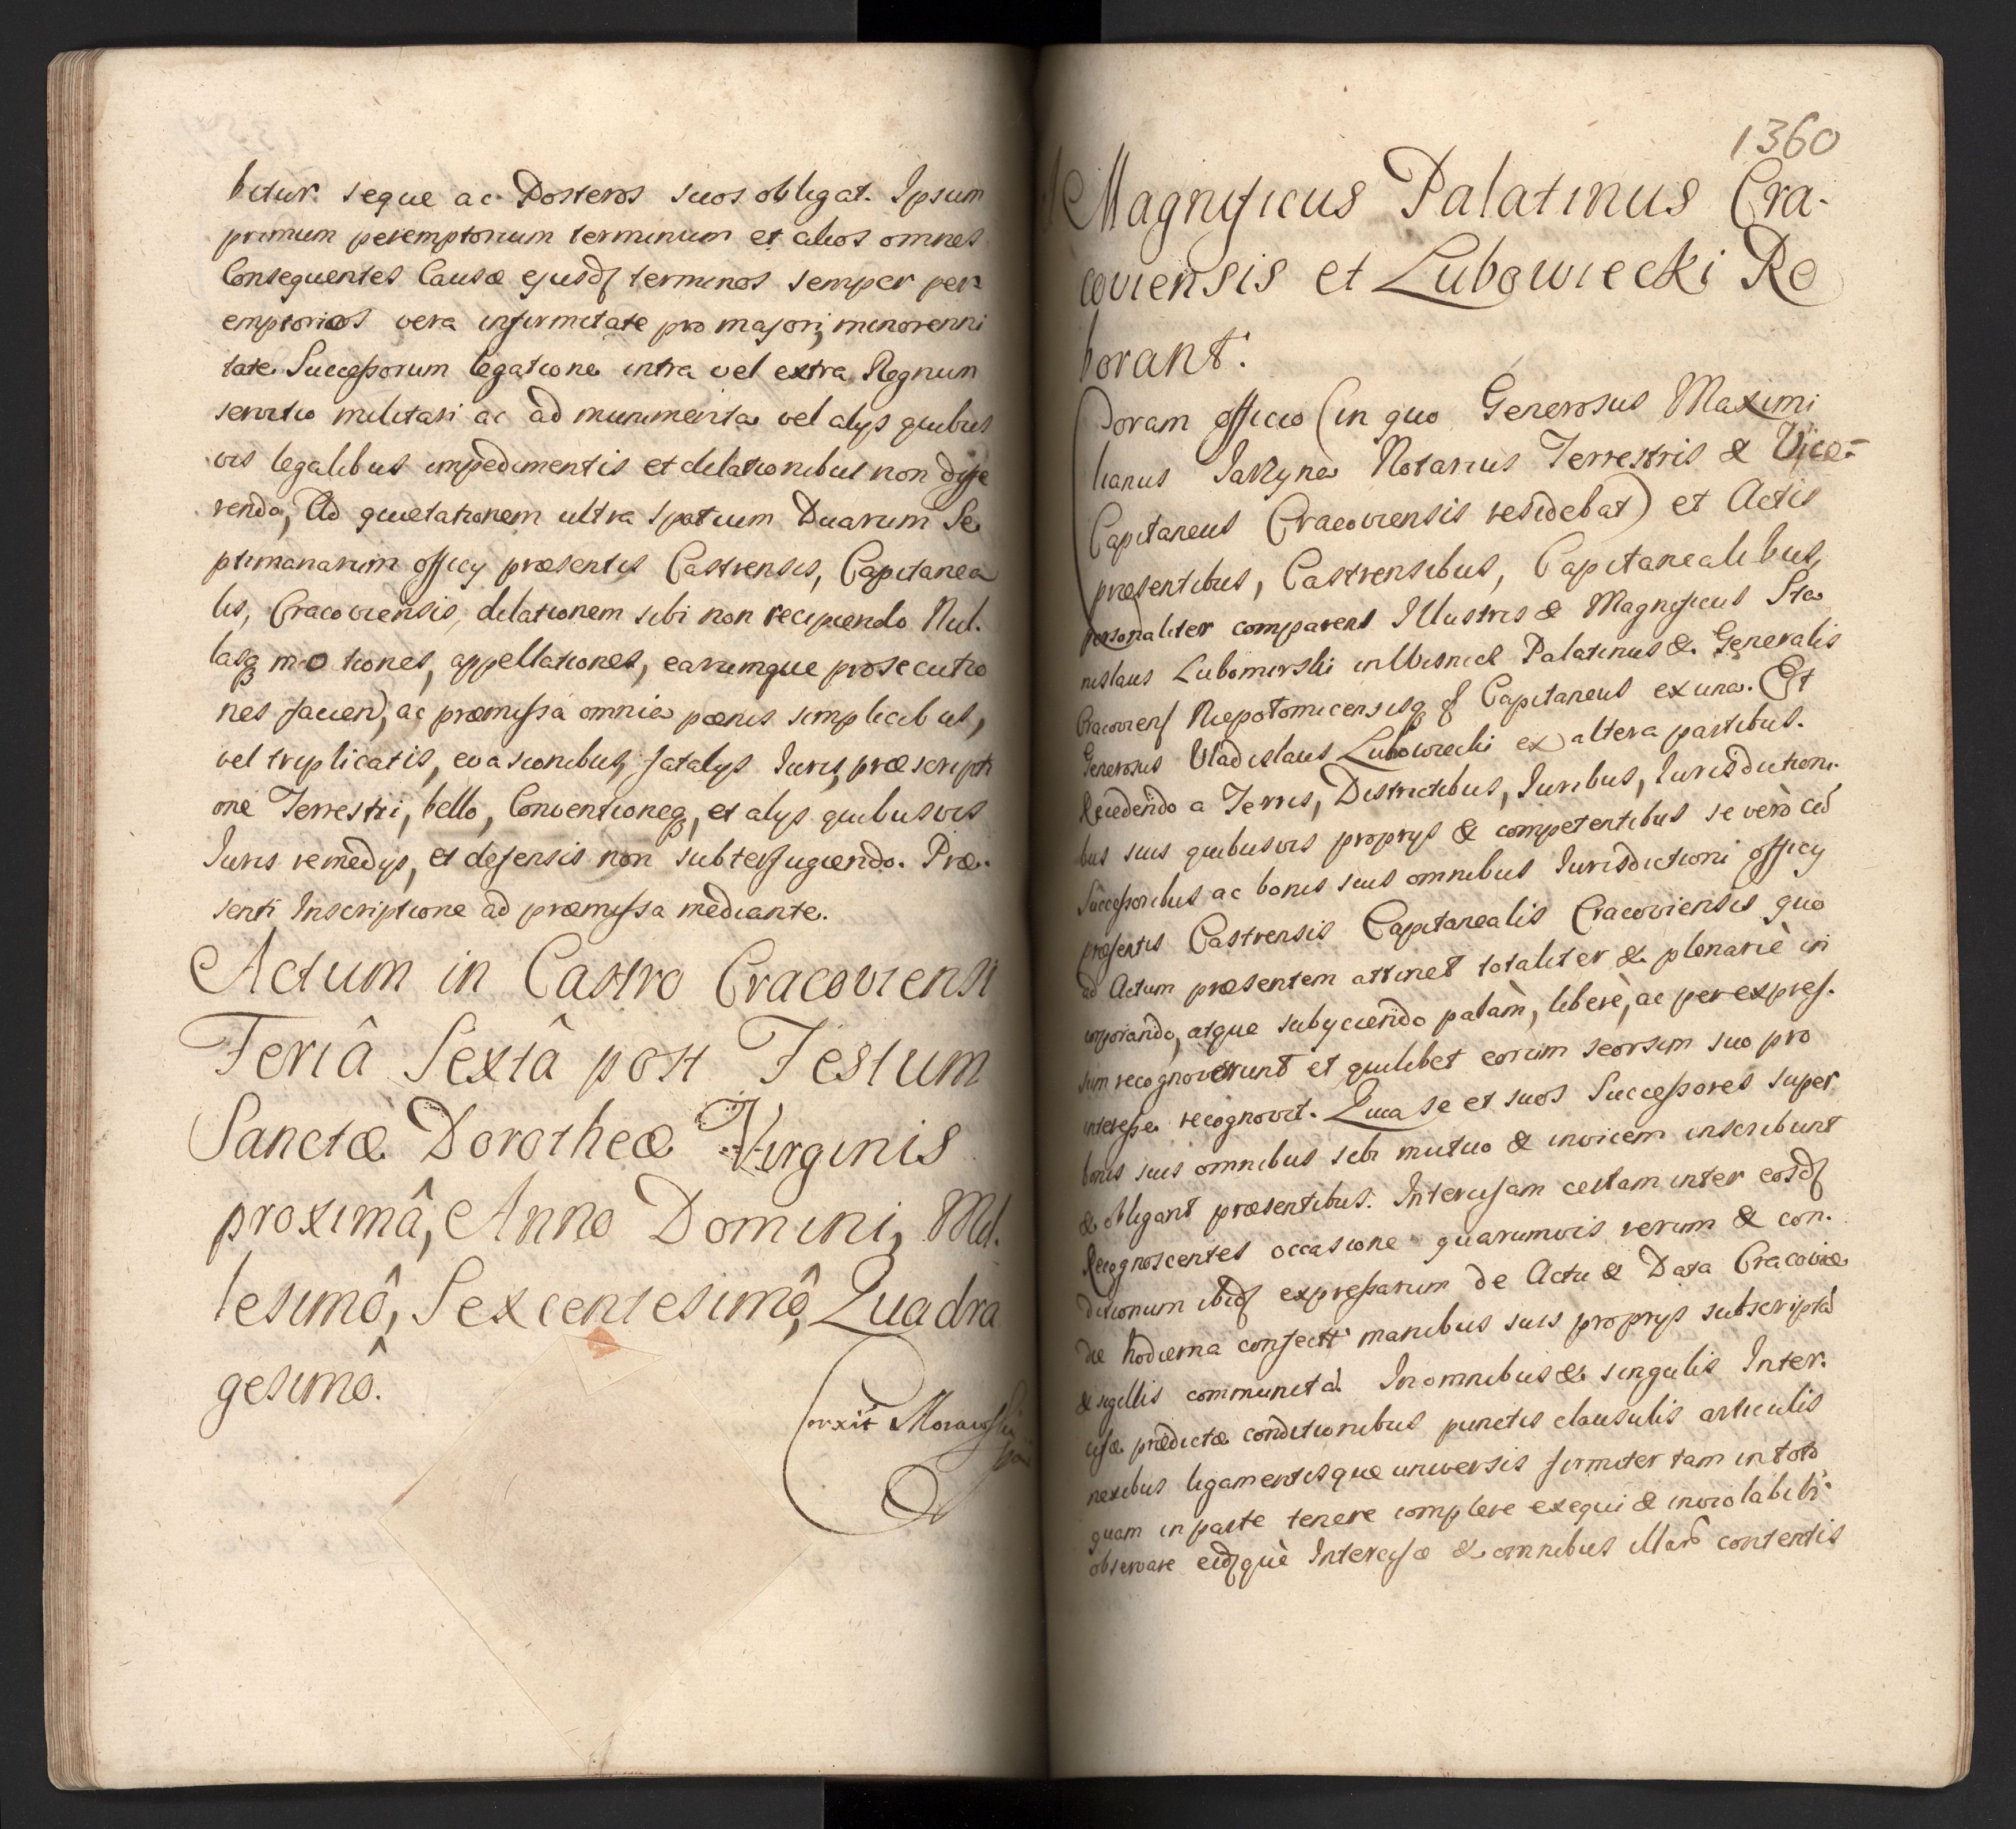 bitur seque ac Posteros suos obligat. Ipsum
primum peremptorium terminum et alios omnes
Consequentes Causæ ejusdſ terminos semper per
emptorios vera infirmitate pro majori, minorenni
tate Successorum legatione intra vel extra Regnum
servitio militari ac ad munimenta vel alys quibus
vis legalibus impedimentis et dilationibus non diffe
renda, Ad quietationem ultra spatium Duarum Se
ptimanarum officy præsentis Castrensis, Capitanea
lis, Cracoviensis, dilationem sibi non recipiendo Nul.
lasq motiones, appellationes, earumque prosecutio
nes facien), ac præmissa omnia pœnis simplicibus,
vel triplicatis, evasionibus, fatalys Iuris, præscripti
one Terrestri, bello, Conventioneq, et alys quibusvis
Iuris remedys, et defensis non subterfugiendo. Præ.
senti Inscriptione ad præmissa mediante.
Actum in Castro Cracoviensi
Feriâ Sextâ post Festum
Sanctæ Dorotheæ Virginis
proximâ, Anno Domini, Mil.
lesimô, Sexcentesimô, Quadra
gesimô.
Corxit Morawski
1360
Magnificus Palatinus Cra-
coviensis et Lubowiecki Ro
borant.
Coram officio (in quo Generosus Maximi
lianus Jaklyna Notarius Terrestris & Vice-
Capitaneus Cracoviensis residebat) et Actis
præsentibus, Castrensibus, Capitanealibus,
personaliter comparens Illustris & Magnificus Sta
nislaus Lubomirski in Wisnicz Palatinus & Generalis
Cracovienſ Niepotomicensisq ꝭ Capitaneus ex una. Et
Generosus Vladislaus Lubowiecki ex altera partibus.
Recedendo a Terris, Districtibus, Iuribus, Iurisdictioni-
bus suis quibusvis proprys & competentibus se verò cū
Successoribus ac bonis suis omnibus Iurisdictioni officy
præsentis Castrensis Capitanealis Cracoviensis quo
ad Actum præsentem attinet totaliter & plenariè in
corporando, atque subyciendo palàm, liberè, ac per expres-
sum recognoverunt et quilibet eorum seorsim suo pro
interesse recognovit. Quia se et suos Successores super
bonis suis omnibus sibi mutuo & invicem inscribunt
& obligant præsentibus. Intercisam certam inter eosdſ
Recognoscentes occasione quarumvis rerum & con-
ditionum ibidſ expressarum de Actu & Data Cracoviæ
die hodierna confectā manibus suis proprys subscriptā
& sigillis communitā. In omnibus & singulis Inter-
cisæ prædictæ conditionibus punctis clausulis articulis
nexibus ligamentisque universis firmiter tam in toto
quam in parte tenere complere exequi & inviolabilr
observare eidſquè Intercisæ & omnibus illarū contentis